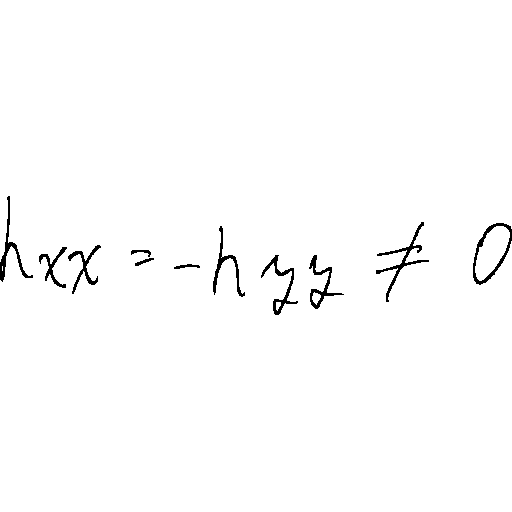 hxx = -hyy ≠ 0